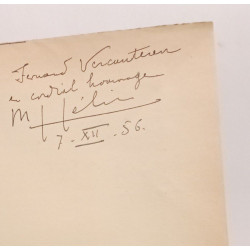 Fernand Vercauteren
en cordial hommage
M Hélin
7 - XII - 56.